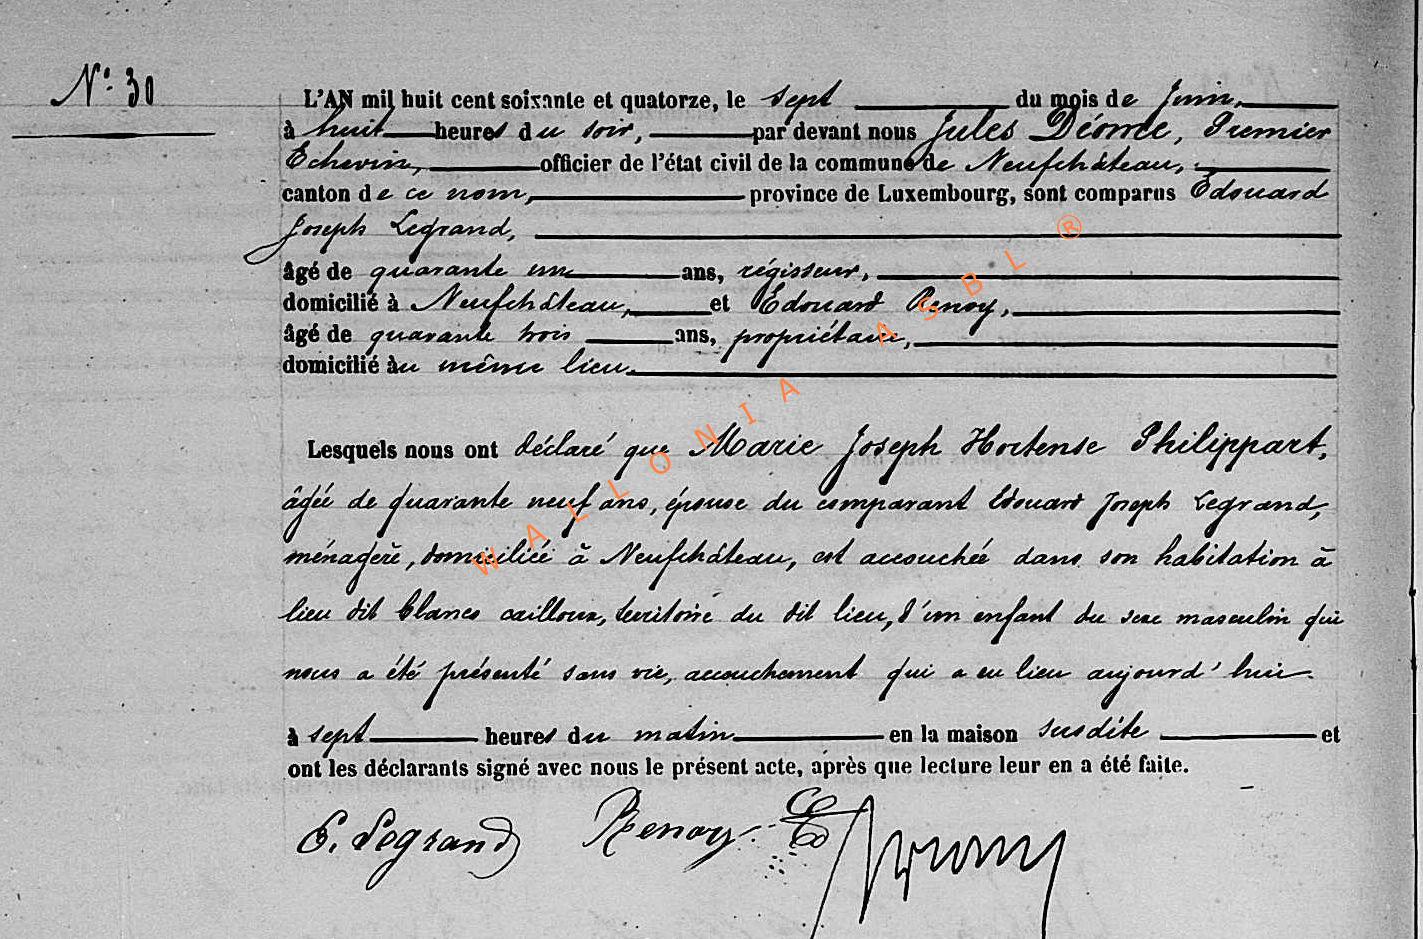 N° 30
L'AN mil huit cent soixante et quatorze, le sept du mois de Juin,
à huit heures du soir, par devant nous Jules Déome, Premier
Echevin, officier de l'état civil de la commune de Neufchâteau,
canton de ce nom, province de Luxembourg, sont comparus Edouard
Joseph Legrand,
âgé de quarante un ans, régisseur,
domicilié à Neufchâteau, et Edouard Renoy,
âgé de quarante trois ans, propriétaire,
domicilié au même lieu.
Lesquels nous ont déclaré que Marie Joseph Hortense Philippart,
âgée de quarante neuf ans, épouse du comparant Edouard Joseph Legrand,
ménagère, domiciliée à Neufchâteau, est accouchée dans son habitation à
lieu dit blancs cailloux, territoire du dit lieu, d'un enfant du sexe masculin qui
nous a été présenté sans vie, accouchement qui a eu lieu aujourd'hui
à sept heures du matin en la maison susdite et
ont les déclarants signé avec nous le présent acte, après que lecture leur en a été faite.
E. Legrand Renoy Ed
WALLONIA ASBL ®